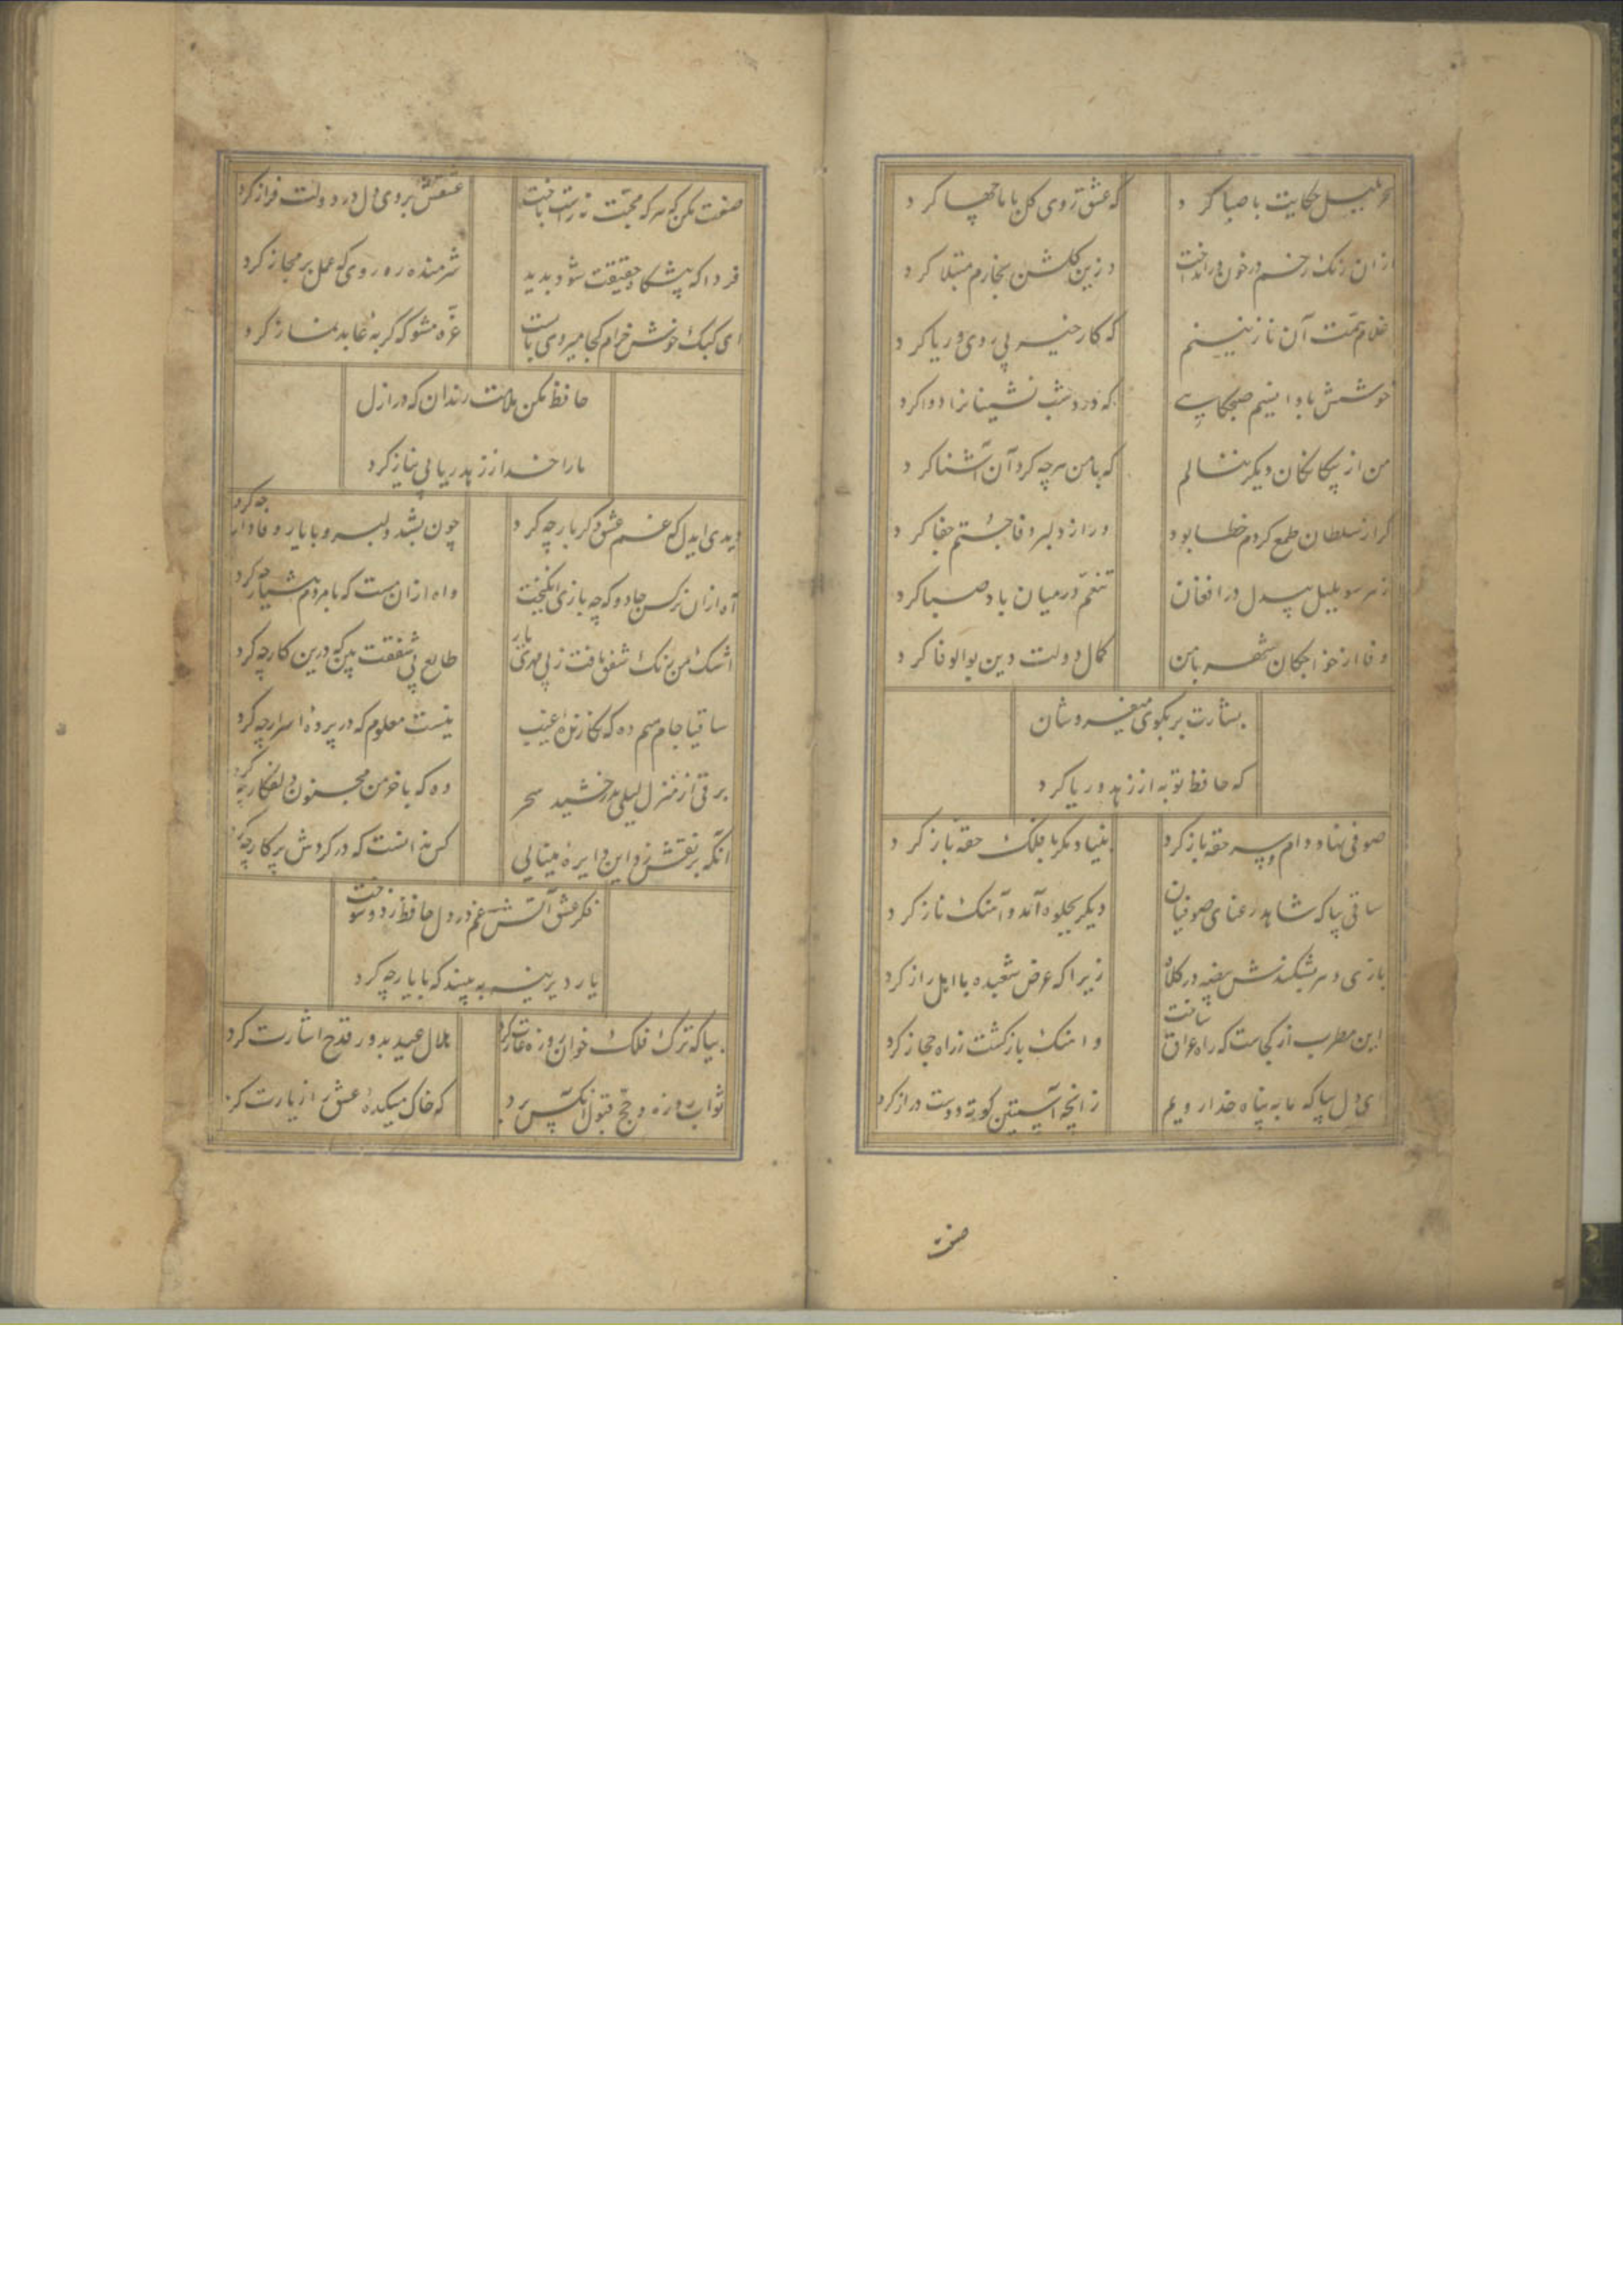 سحر بلبل حکایت با صبا کرد که عشق روی گل با ما چها کرد
از ان رنک رخم در خون در انداخت وزین کلشن بخارم مبتلا کرد
غلام همت آن نازنینم که کار خیر بی روی و ریا کرد
خوشش باد ا نسیم صبحکاهی که درد شب نشینانرا دوا کرد
من از بیکانکان دیکر ننالم که با من هر چه کرد آن آشنا کرد
کر از سلطان طمع کردم خطا بود ور از دلبر وفا جستم جفا کرد
ز هر سو بلبل بیدل در افغان تنعم در میان باد صبا کرد
وفا از خواجکان شهر با من کمال دولت و دین بوالوفا کرد
بشارت بر بکوی میفروشان
که حافظ توبه از زهد و ریا کرد
صوفی نهاد دام و سر حقه باز کرد بنیاد مکر با فلک حقه باز کرد
ساقی بیا که شاهد رعنای صوفیان دیکر بجلوه آمد و آهنک ناز کرد
بازی دهر بشکندش بیضه در کلاه زیرا که عرض شعبده با اهل راز کرد
این مطرب از کجاست که راه عراق ساخت و اهنک باز کشت ز راه حجاز کرد
ای دل بیا که ما به پناه خدا رویم ز انچه آستین کوته و دست دراز کرد
صنعت
صنعت مکن که هر که محبت نه راست باخت عشقش بروی دل در دولت فراز کرد
فردا که پیشکاه حقیقت شود بدید شرمنده ره روی که عمل بر مجاز کرد
ای کبک خوش خرام کجا میروی بایست غره مشو که کربه عابد نماز کرد
حافظ مکن ملامت رندان که در ازل
ما را خدا از زهد ریا بی نیاز کرد
دیدی ایدل که غم عشق دکر بار چه کرد چون بشد دلبر و با یار وفادار چه کرد
آه از ان نرکس جادو که چه بازی انکیخت واه ازان مست که با مردم هشیار چه کرد
اشک من رنک شفق یافت ز بی مهری یار طالع بی شفقت بین که درین کار چه کرد
ساقیا جام میم ده که نکارنده غیب نیست معلوم که در پرده اسرار چه کرد
برقی از منزل لیلی بدرخشید سحر وه که با خرمن مجنون دلفکار چه کرد
آنکه بر نقش زد این دایره مینایی کس ندانست که در کردش پرکار چه کرد
فکر عشق آتش غم در دل حافظ زد و سوخت
یار دیرینه ببینید که با یار چه کرد
بیا که ترک فلک خوان روزه غارت کرد هلال عید بدور قدح اشارت کرد
ثواب روزه و حج قبول آنکس برد که خاک میکده عشق را زیارت کرد